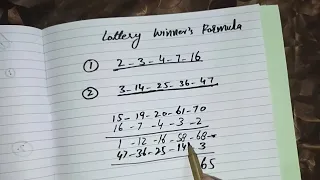 Lottery Winner's Formula
① 2-3-4-7-16
② 3-14-25-36-47
15-19-20-61-70
16-7-4-3-2
1-12-16-58-68
47-36-25-14-3
65